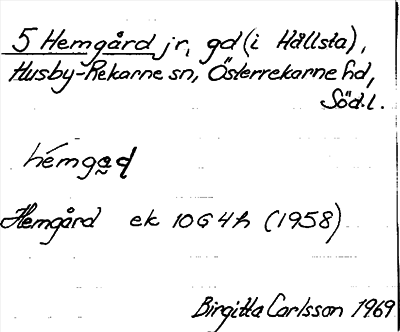 5 Hemgård jr, gd (i Hållsta),
Husby-Rekarne sn, Österrekarne hd,
Söd.l.
hémgad
Hemgård ek 10G4h (1958)
Birgitta Carlsson 1969